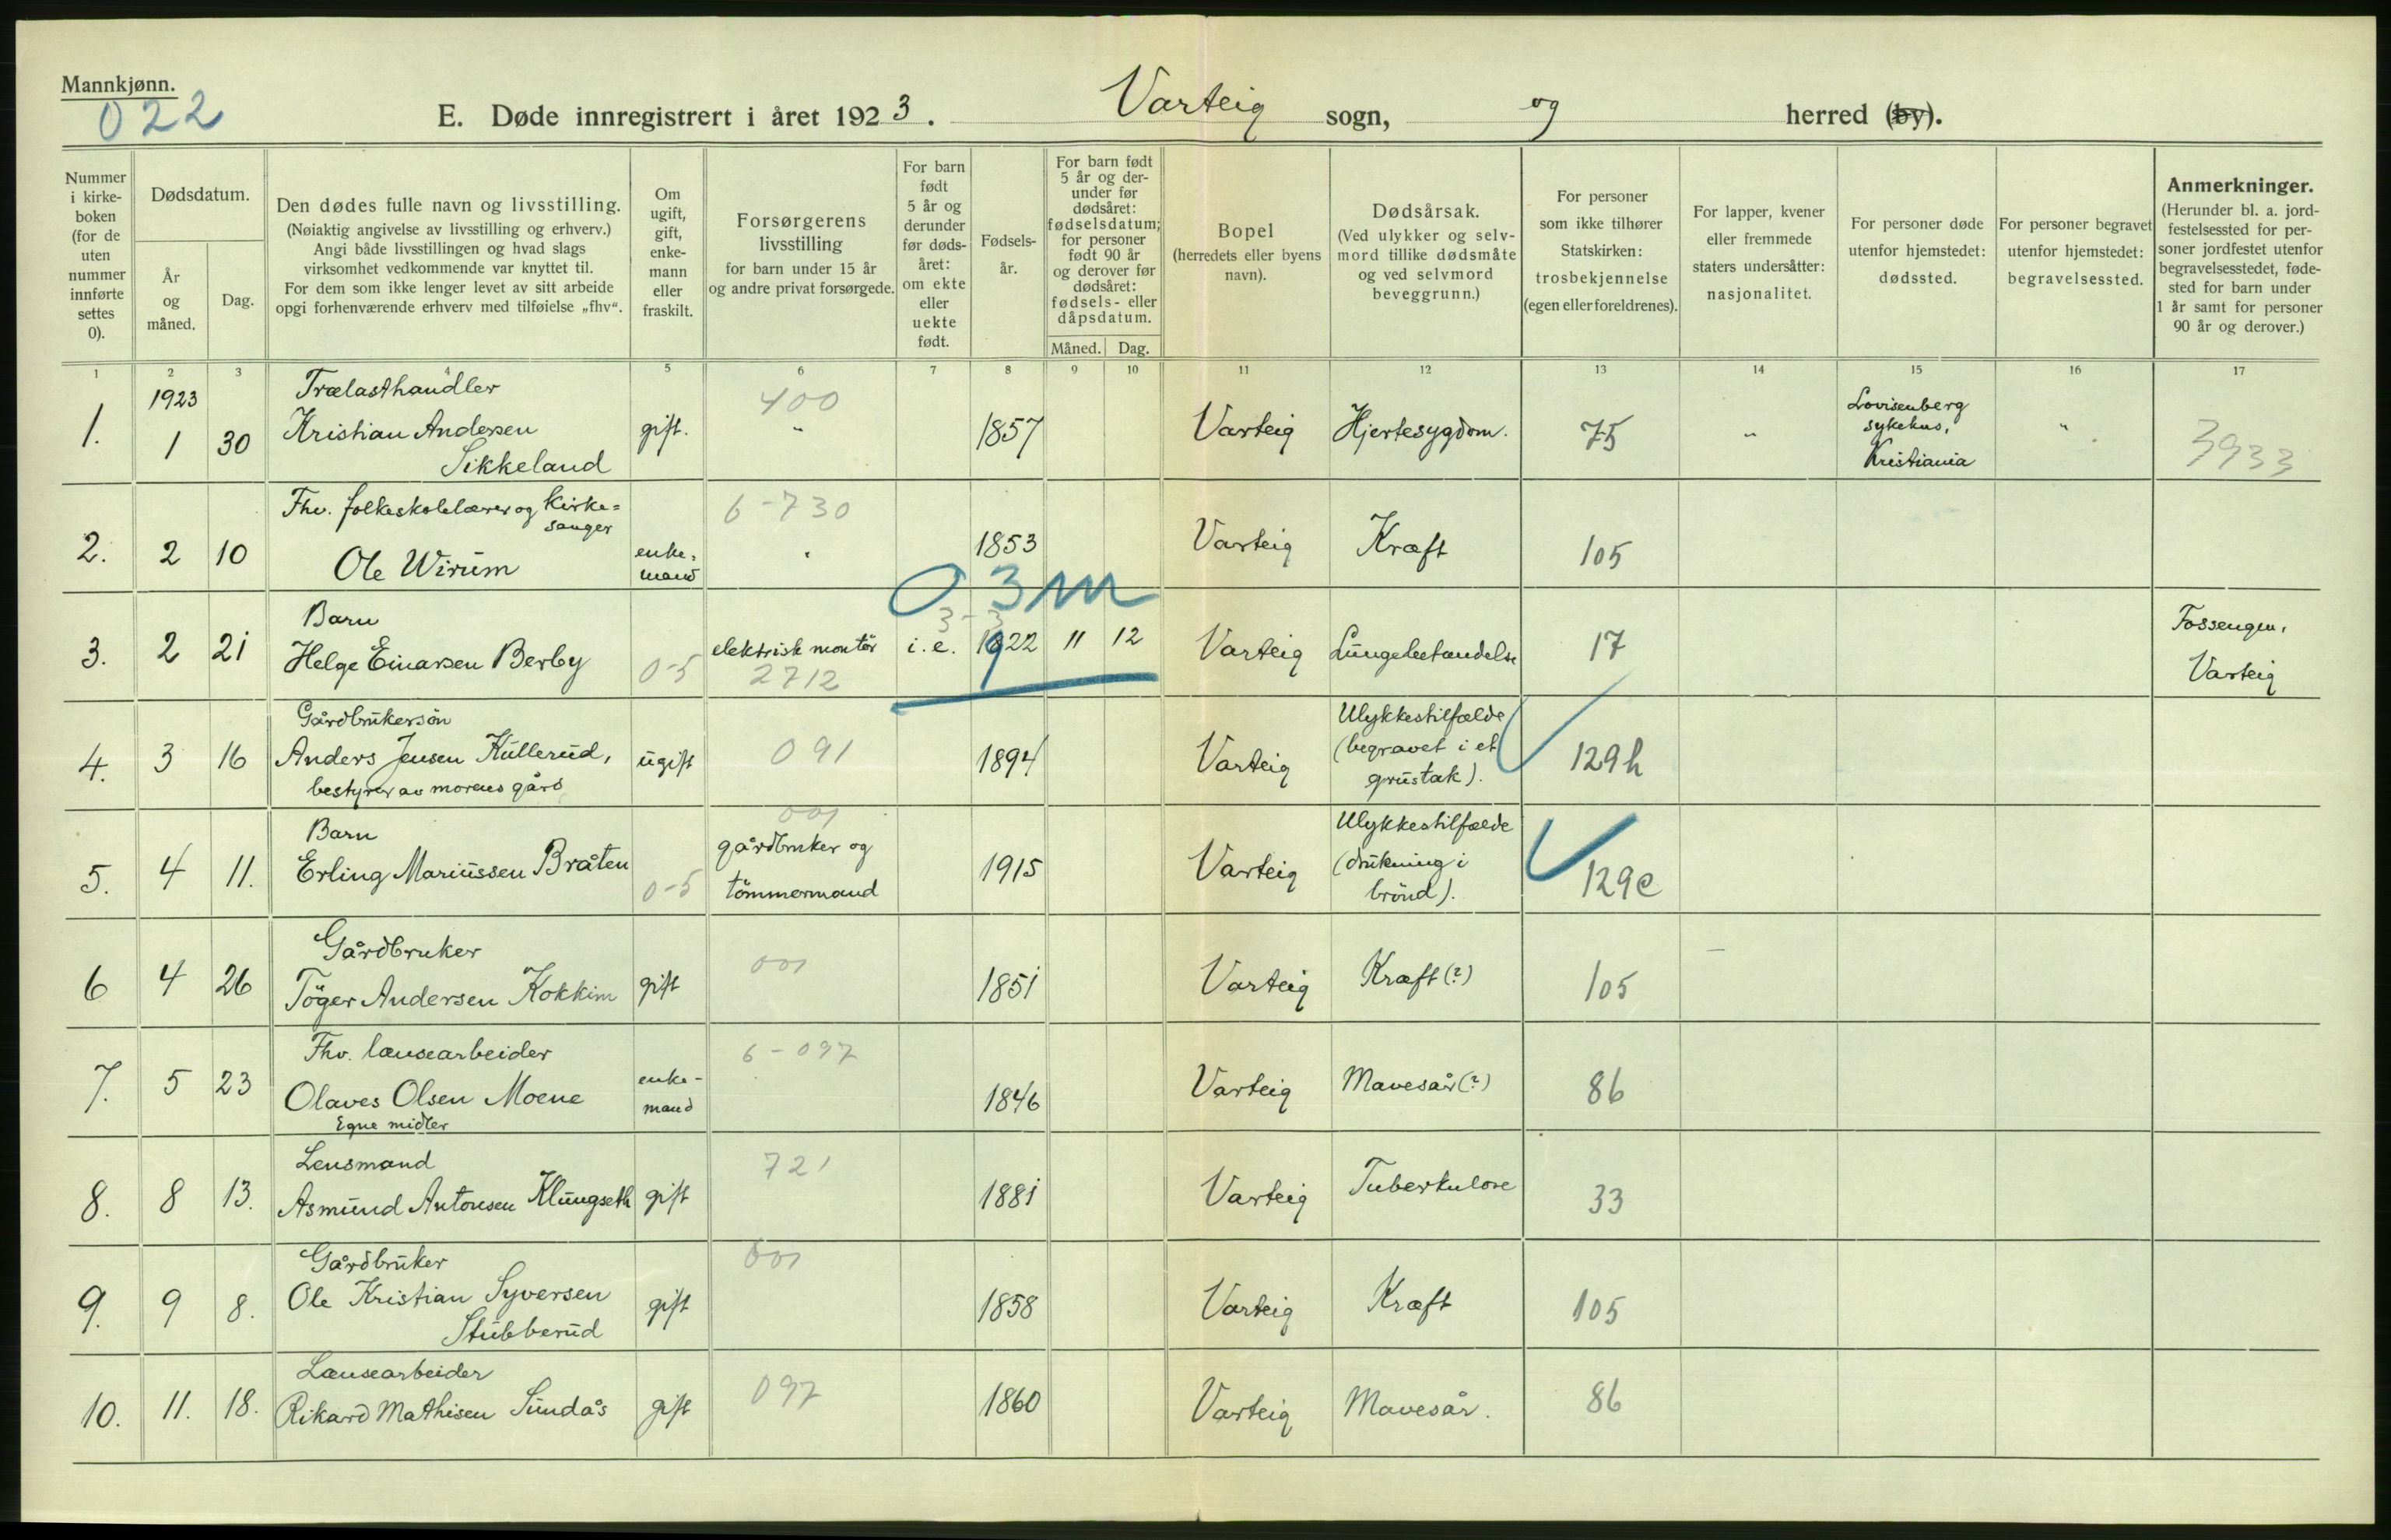 Mannkjønn.
022
E. Døde innregistrert i året 1923. Varteig sogn, og herred (by).
Nummer i kirke-boken (for de uten nummer innførte settes 0).
Dødsdatum.
År og måned.
Dag.
Den dødes fulle navn og livsstilling.
(Nøiaktig angivelse av livsstilling og erhverv.)
Angi både livsstillingen og hvad slags
virksomhet vedkommende var knyttet til.
For dem som ikke lenger levet av sitt arbeide
opgi forhenværende erhverv med tilføielse „fhv“.
Om ugift, gift, enke-mann eller fraskilt.
Forsørgerens livsstilling
for barn under 15 år
og andre privat forsørgede.
For barn født 5 år og derunder før døds-året: om ekte eller uekte født.
Fødsels-år.
For barn født 5 år og der-under før dødsåret: fødselsdatum; for personer født 90 år og derover før dødsåret: fødsels- eller dåpsdatum.
Måned.
Dag.
Bopel
(herredets eller byens navn).
Dødsårsak.
(Ved ulykker og selv-mord tillike dødsmåte og ved selvmord beveggrunn.)
For personer som ikke tilhører Statskirken: trosbekjennelse (egen eller foreldrenes).
For lapper, kvener eller fremmede staters undersåtter: nasjonalitet.
For personer døde utenfor hjemstedet: dødssted.
For personer begravet utenfor hjemstedet: begravelsessted.
Anmerkninger.
(Herunder bl. a. jord-festelsessted for per-soner jordfestet utenfor begravelsesstedet, føde-sted for barn under 1 år samt for personer 90 år og derover.)
1 2 3 4 5 6 7 8 9 10 11 12 13 14 15 16 17
1923
Trælasthandler 400
1. 1 30 Kristian Andersen gift. " 1857 Varteig Hjertesygdom. 75 " Lovisenberg sykehus, Kristiania " 3933
Sikkeland
Fhv. folkeskolelærer og kirke=sanger 6-730
2. 2 10 Ole Wirum enke-mand 1853 Varteig Kræft 105
0 3m
3-3
Barn
3. 2 21 Helge Einarsen Berby 0-5 elektrisk montör 2712 i. e. 1922 11 12 Varteig Lungebetændelse 17 Fossengen, Varteig
Gårdbrukersön
4. 3 16 Anders Jensen Kullerud, ugift 091 1894 Varteig Ulykkestilfælde (begravet i et grustak). 129h
bestyrer av morens gård
Barn 001
5. 4 11. Erling Mariussen Bråten 0-5 gårdbruker og tömmermand 1915 Varteig Ulykkestilfælde (drukning i brönd). 129e
Gårdbruker
6 4 26 Töger Andersen Kokkim gift 001 1851 Varteig Kræft (?) 105
Fhv. lænsearbeider 6-097
7. 5 23 Olaves Olsen Moene enke-mand 1846 Varteig Mavesår (?) 86
Egne midler
Lensmand 721
8. 8 13. Asmund Antonsen Klungseth gift 1881 Varteig Tuberkulose 33
Gårdbruker 001
9. 9 8. Ole Kristian Syversen gift 1858 Varteig Kræft 105
Stubberud
Lænsearbeider
10. 11. 18. Rikard Mathisen Sundås gift 097 1860 Varteig Mavesår. 86